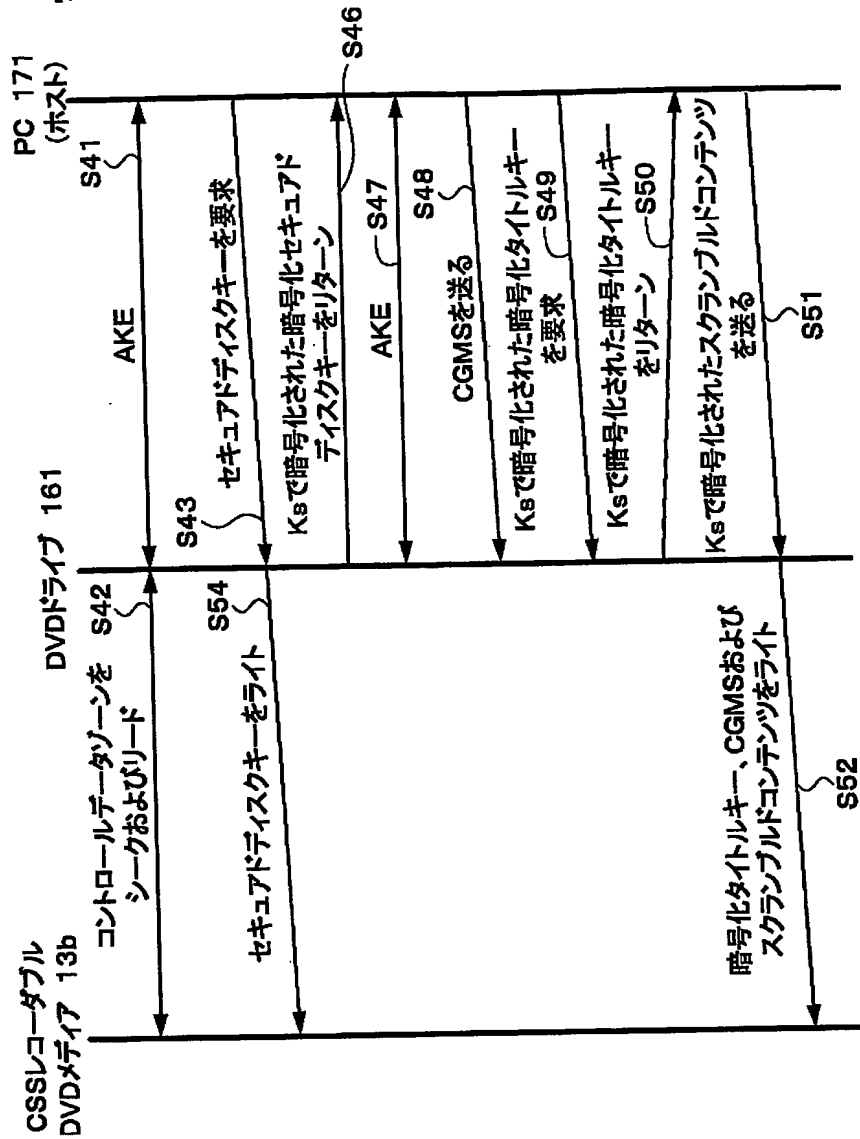 CSSレコーダブル
DVDメディア 13b
DVDドライブ 161
PC 171
(ホスト)
S41
AKE
コントロールデータゾーンを
シークおよびリード
S42
セキュアドディスクキーを要求
S43
セキュアドディスクキーをライト
S54
Ksで暗号化された暗号化セキュアド
ディスクキーをリターン
S46
AKE
S47
CGMSを送る
S48
Ksで暗号化された暗号化タイトルキー
を要求
S49
Ksで暗号化された暗号化タイトルキー
をリターン
S50
Ksで暗号化されたスクランブルドコンテンツ
を送る
S51
暗号化タイトルキー、CGMSおよび
スクランブルドコンテンツをライト
S52